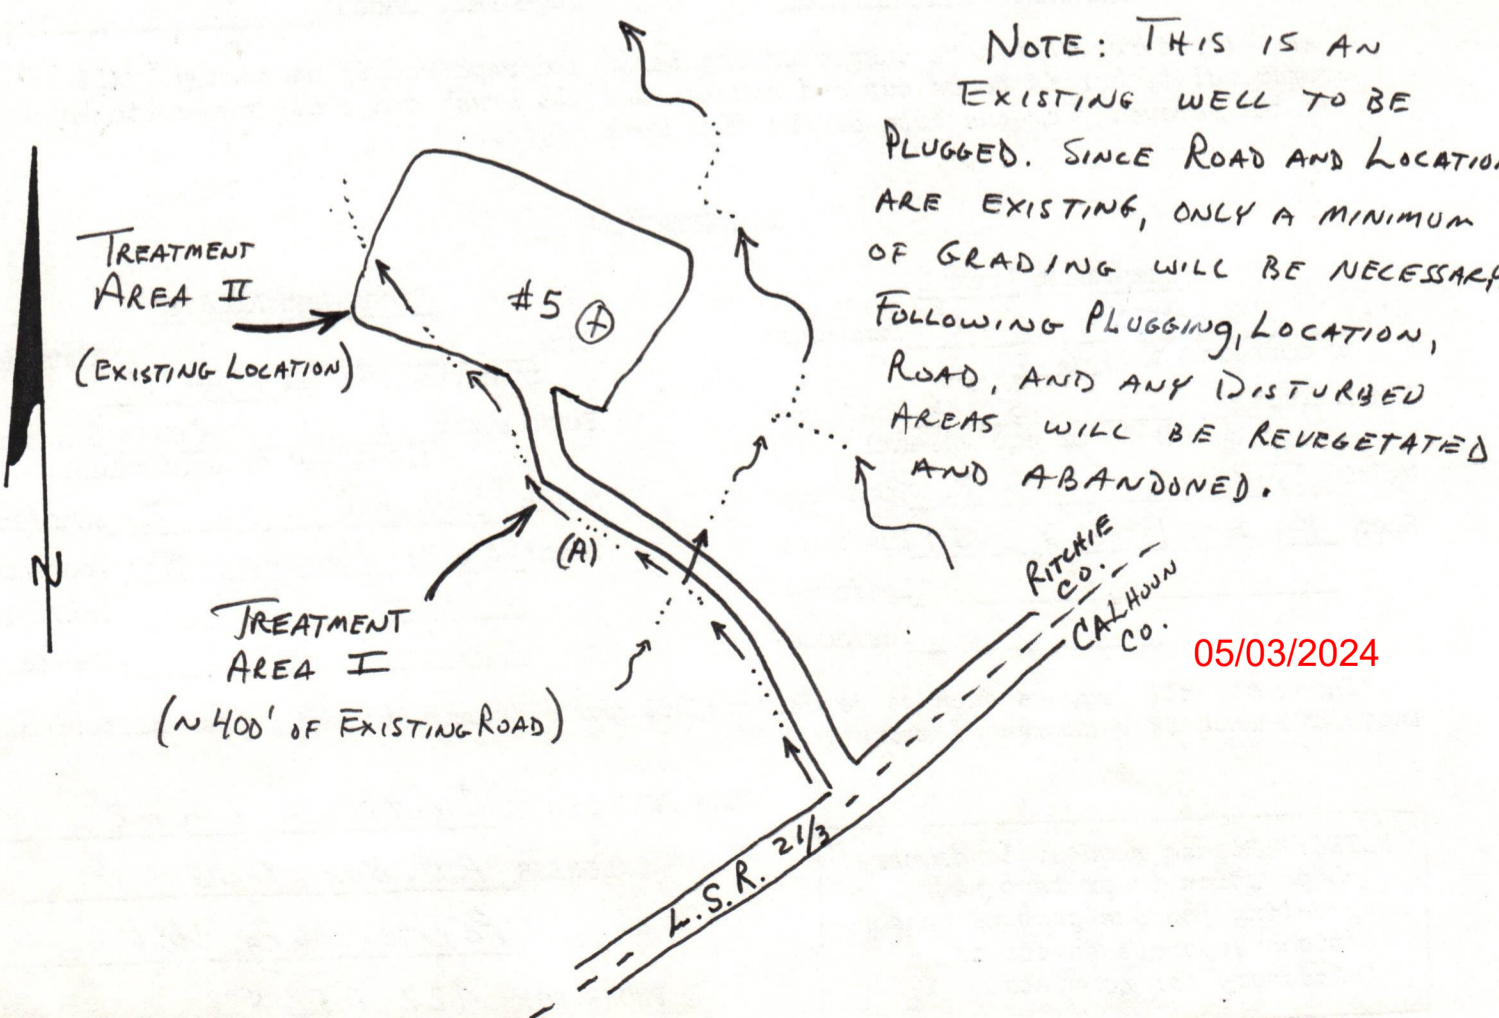 NOTE: THIS IS AN
EXISTING WELL TO BE
PLUGGED. SINCE ROAD AND LOCATION
ARE EXISTING, ONLY A MINIMUM
OF GRADING WILL BE NECESSARY
FOLLOWING PLUGGING, LOCATION,
ROAD, AND ANY DISTURBED
AREAS WILL BE REVEGETATED
AND ABANDONED.
TREATMENT
AREA II
(EXISTING LOCATION)
#5
N
(A)
TREATMENT
AREA I
(~400' OF EXISTING ROAD)
RITCHIE
CO.
CALHOUN
CO.
05/03/2024
L.S.R. 21/3